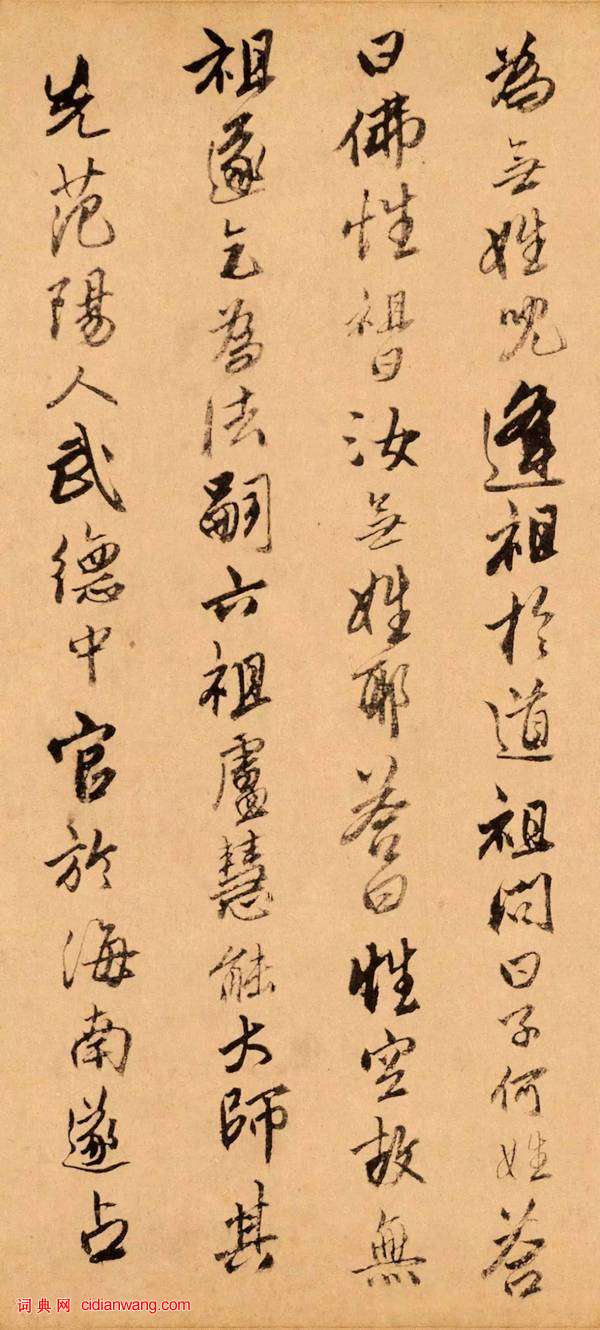 為无姓児逢祖於道祖問曰子何姓答
曰佛性祖曰汝无姓耶答曰性空故無
祖遂乞為法嗣六祖盧慧能大師其
先范陽人武德中官於海南遂占
词典网 cidianwang.com